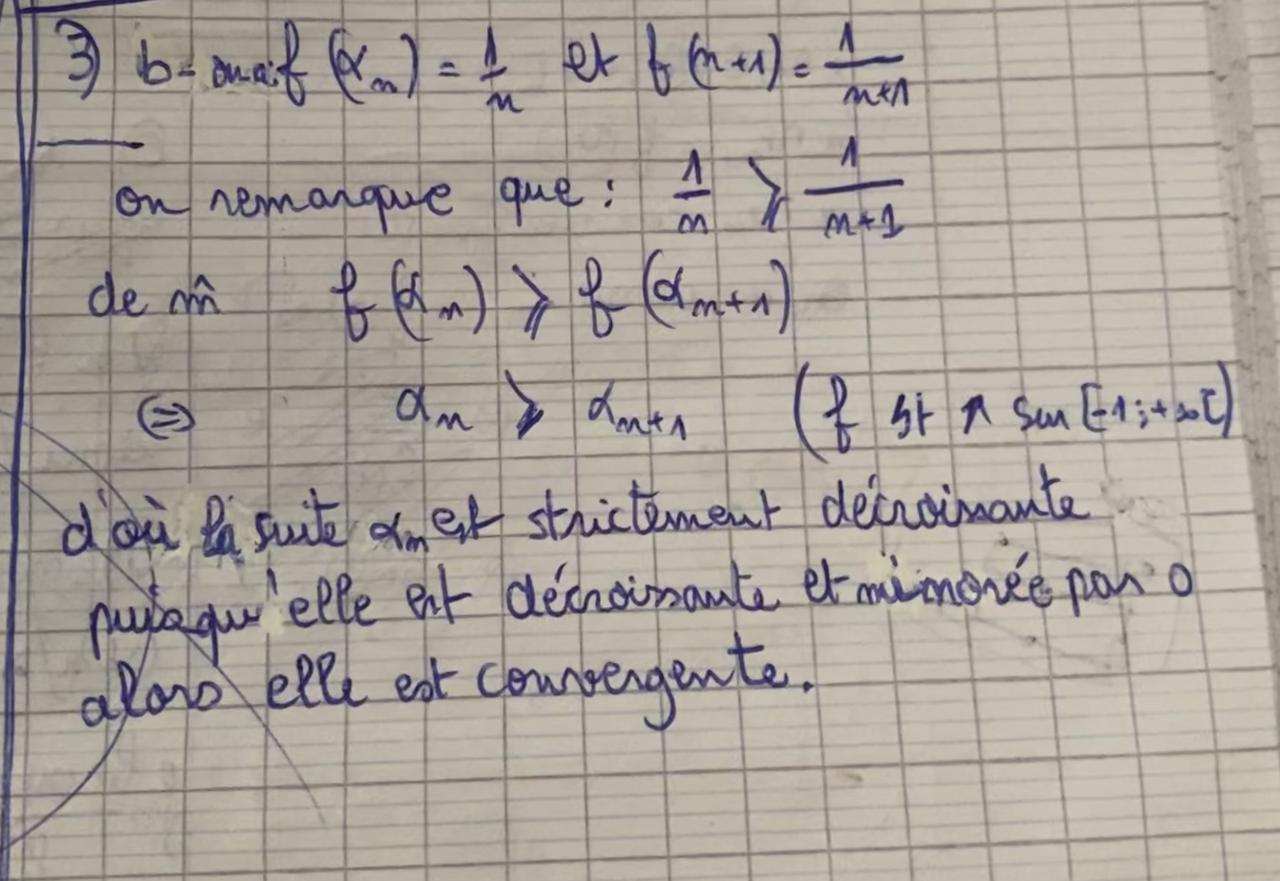 3) b- on a: f(αₙ) = 1/n et f(n+1) = 1/(n+1)
on remarque que : 1/n ⩾ 1/(n+1)
de m̂ f(αₙ) ⩾ f(αₙ₊₁)
⇔ αₙ ⩾ αₙ₊₁ (f st ↗ sur [-1;+∞[)
d'où la suite αₙ est strictement décroissante
puisqu'elle est décroissante et minorée par 0
alors elle est convergente.